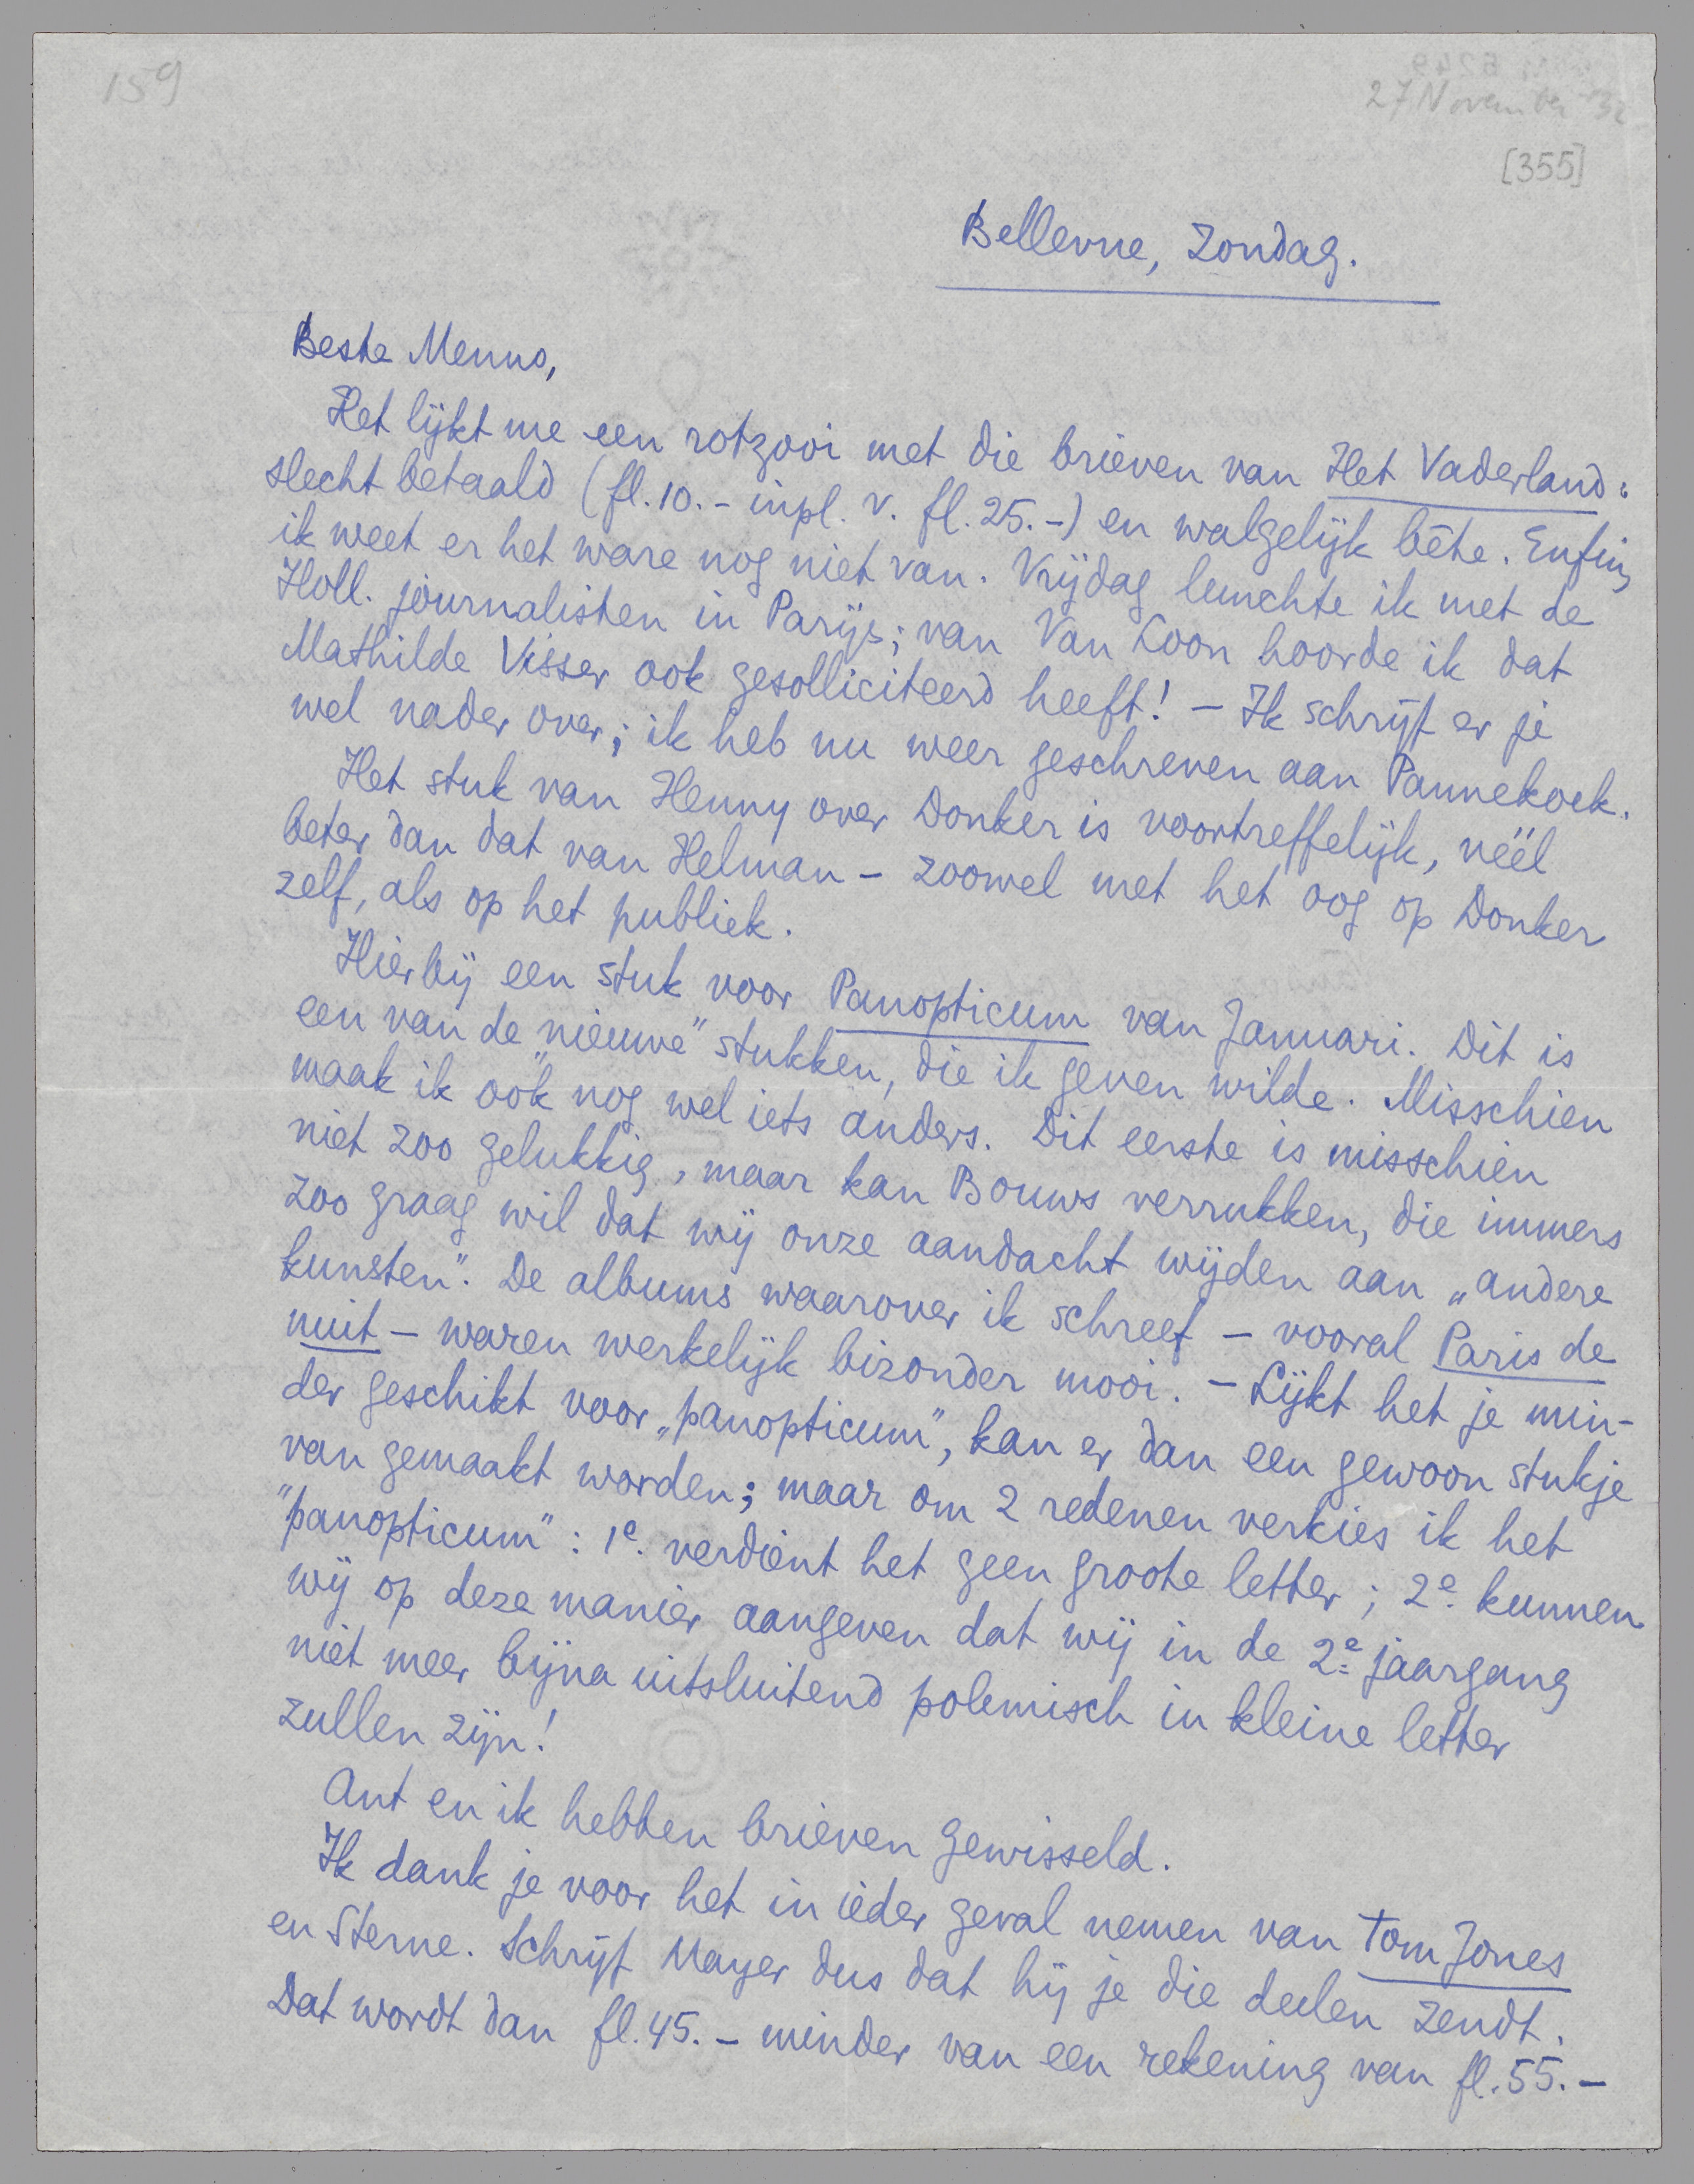 159
27 November '32
[355]
Bellevue, Zondag.
Beste Menno,
Het lijkt me een rotzooi met die brieven van Het Vaderland:
slecht betaald (fl. 10.- inpl. v. fl. 25.-) en walgelijk bête. Enfin,
ik weet er het ware nog niet van. Vrijdag lunchte ik met de
Holl. journalisten in Parijs; van Van Loon hoorde ik dat
Mathilde Visser ook gesolliciteerd heeft! – Ik schrijf er je
wel nader over; ik heb nu weer geschreven aan Pannekoek.
Het stuk van Henny over Donker is voortreffelijk, véél
beter dan dat van Helman – zoowel met het oog op Donker
zelf, als op het publiek.
Hierbij een stuk voor Panopticum van Januari. Dit is
een van de „nieuwe" stukken, die ik geven wilde. Misschien
maak ik óók nog wel iets anders. Dit eerste is misschien
niet zoo gelukkig, maar kan Bouws verrukken, die immers
zoo graag wil dat wij onze aandacht wijden aan „andere
kunsten". De albums waarover ik schreef – vooral Paris de
nuit – waren werkelijk bizonder mooi. – Lijkt het je min-
der geschikt voor „panopticum", kan er dan een gewoon stukje
van gemaakt worden; maar om 2 redenen verkies ik het
"panopticum": 1e. verdient het geen groote letter; 2e. kunnen
wij op deze manier aangeven dat wij in de 2e jaargang
niet meer bijna uitsluitend polemisch in kleine letter
zullen zijn!
Ant en ik hebben brieven gewisseld.
Ik dank je voor het in ieder geval nemen van Tom Jones
en Sterne. Schrijf Mayer dus dat hij je die deelen zendt.
Dat wordt dan fl. 45.– minder van een rekening van fl. 55.–